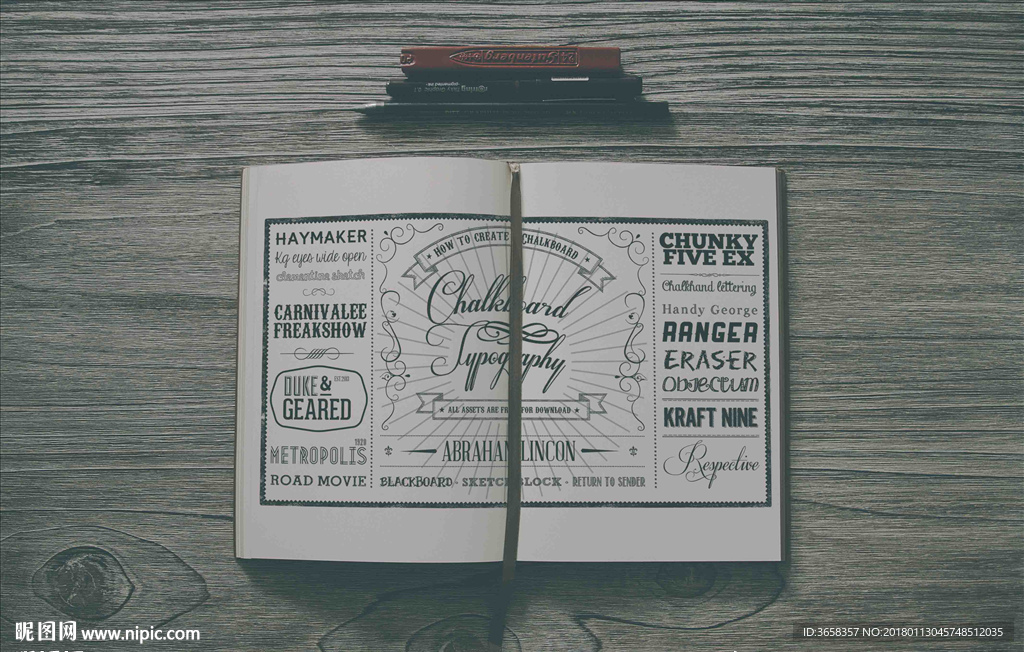 Gutenberg
HAYMAKER
Kg eyes wide open
clementine sketch
CARNIVALEE
FREAKSHOW
DUKE &
EST 2013
GEARED
1920
METROPOLIS
ROAD MOVIE
HOW TO CREATE CHALKBOARD
Chalkboard
Typography
ALL ASSETS ARE FREE FOR DOWNLOAD
ABRAHAN LINCON
BLACKBOARD - SKETCH BLOCK - RETURN TO SENDER
CHUNKY
FIVE EX
Chalkhand lettering
Handy George
RANGER
ERASER
OBJECTUM
KRAFT NINE
Respective
昵图网 www.nipic.com
ID:3658357 NO:20180113045748512035